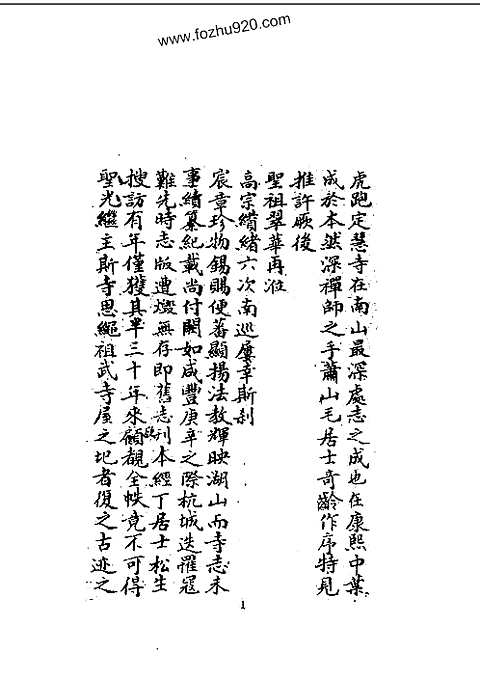 www.fozhu920.com
虎跑定慧寺在南山最深處志之成也在康熙中葉
成於本然深禪師之手蕭山毛居士奇齡作序特見
推許厥後
聖祖翠華再蒞
高宗纘緒六次南巡屢幸斯刹
宸章珍物錫賜便蕃顯揚法教輝映湖山而寺志未
事續纂紀載尚付闕如咸豐庚辛之際杭城迭罹寇
難先時志版遭燬無存即舊志刊本經丁居士松生
搜訪有年僅獲其半三十年來顧覩全帙竟不可得
聖光繼主斯寺思繩祖武寺屋之圮者復之古迹之
1